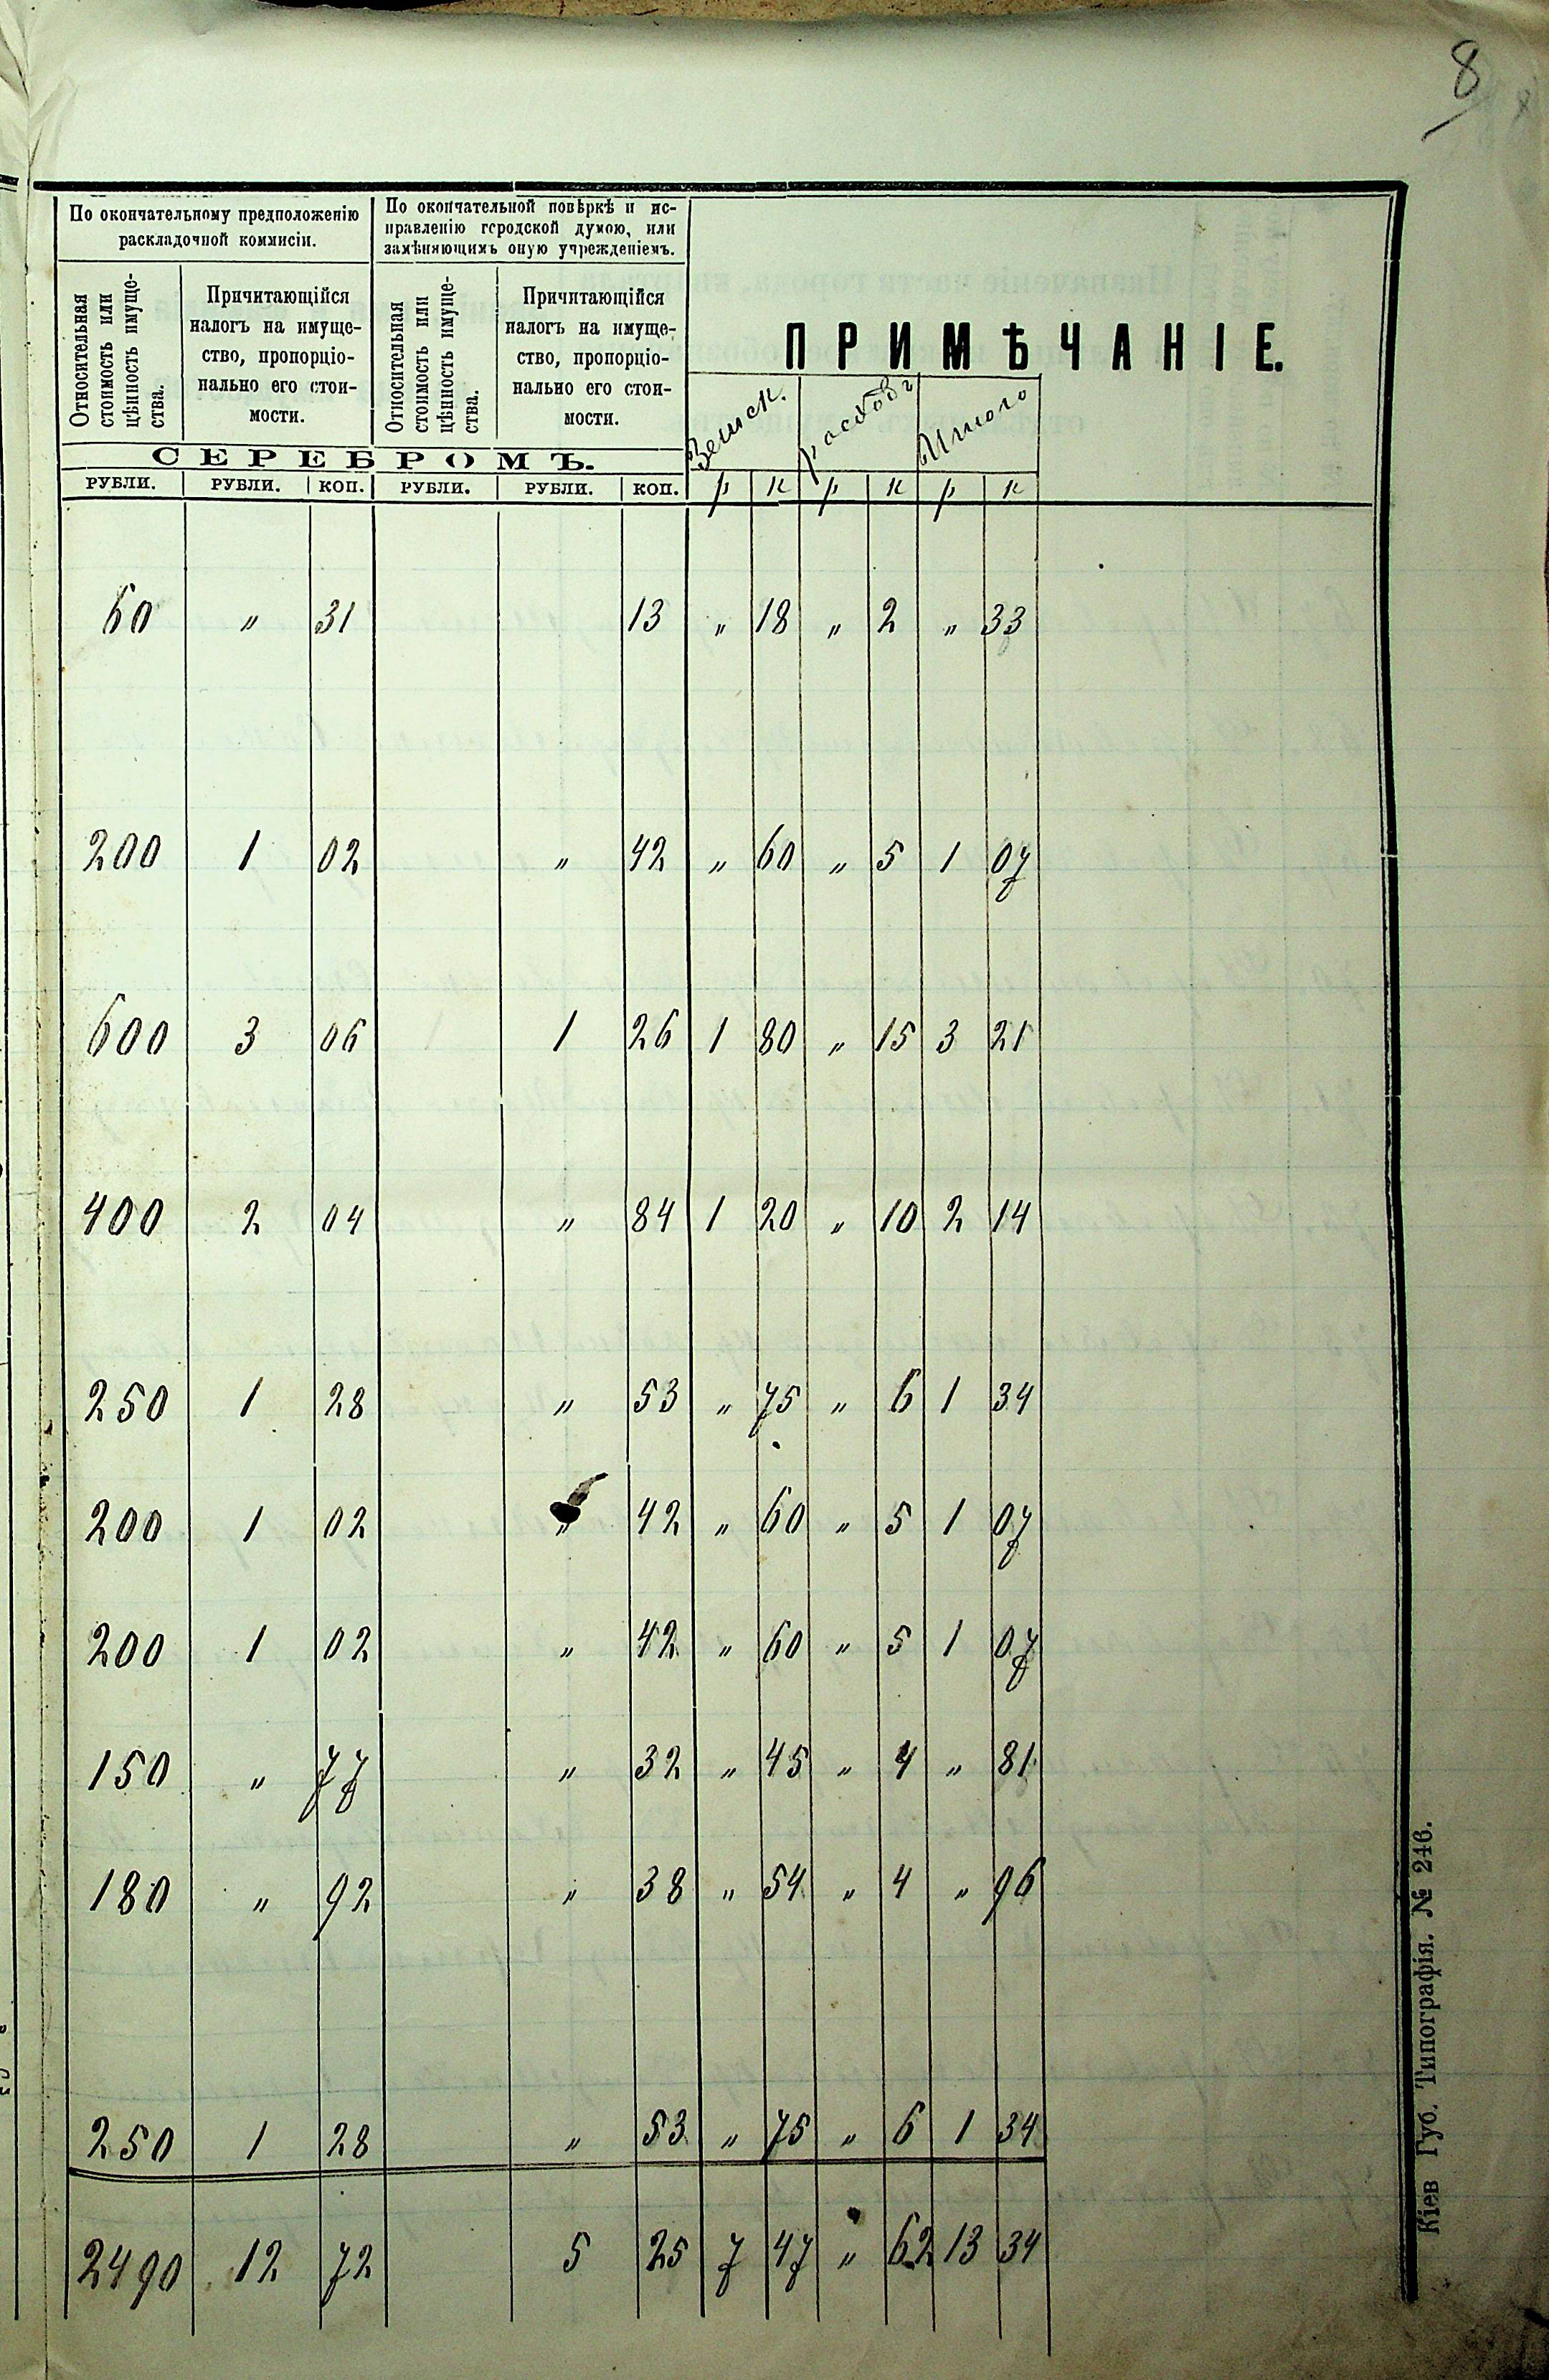 8
По окончательному предположенію
раскладочной коммисіи.
По окончательной повѣркѣ и ис-
правленію городской думою, или
замѣняющимъ оную учрежденіемъ.
Относительная
стоимость или
цѣнность имуще-
ства.
Причитающійся
налогъ на имуще-
ство, пропорціо-
нально его стои-
мости.
Относительная
стоимость или
цѣнность имуще-
ства.
Причитающійся
налогъ на имуще-
ство, пропорціо-
нально его стои-
мости.
ПРИМѢЧАНІЕ.
Земск. расходъ Итого
СЕРЕБРОМЪ.
РУБЛИ. РУБЛИ. КОП. РУБЛИ. РУБЛИ. КОП. р к р к р к
60 " 31 13 " 18 " 2 " 33
200 1 02 " 42 " 60 " 5 1 07
600 3 06 1 26 1 80 " 15 3 21
400 2 04 " 84 1 20 " 10 2 14
250 1 28 " 53 " 75 " 6 1 34
200 1 02 " 42 " 60 " 5 1 07
200 1 02 " 42 " 60 " 5 1 07
150 " 77 " 32 " 45 " 4 " 81
180 " 92 " 38 " 54 " 4 " 96
250 1 28 " 53 " 75 " 6 1 34
2490 12 72 5 25 7 47 " 62 13 34
Кіев Губ. Типографія. № 246.